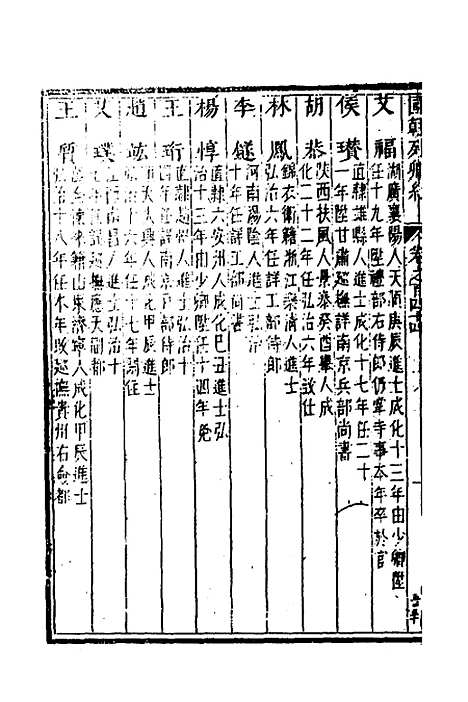 艾福 湖廣襄陽人天順庚辰進士成化十三年由少卿陞
任十九年陞禮部右侍郎仍掌寺事本年卒於官
侯瓚 直隸雄縣人進士成化十七年任二十
一年陞甘肅巡撫詳南京兵部尚書
胡恭 陝西扶風人景泰癸酉舉人成
化二十二年任弘治六年致仕
林鳳 錦衣衛籍浙江 清人進士
弘治六年任詳工部侍郎
李鐩 河南湯陰人進士弘治
十年任詳工部尚書
楊惇 直隸六安州人成化己丑進士弘
治十三年由少卿陞任十四年免
王珩 直隸趙州人進士弘治十
四年任詳南京戶部侍郎
趙竑 人成化甲辰進士
弘治十六年任十七年
艾璞 江西南昌人進士弘治十
七年任詳巡撫應天副都
王質 籍山東濟寧人成化甲辰進士
弘治十八年任本年改巡撫貴州右僉都